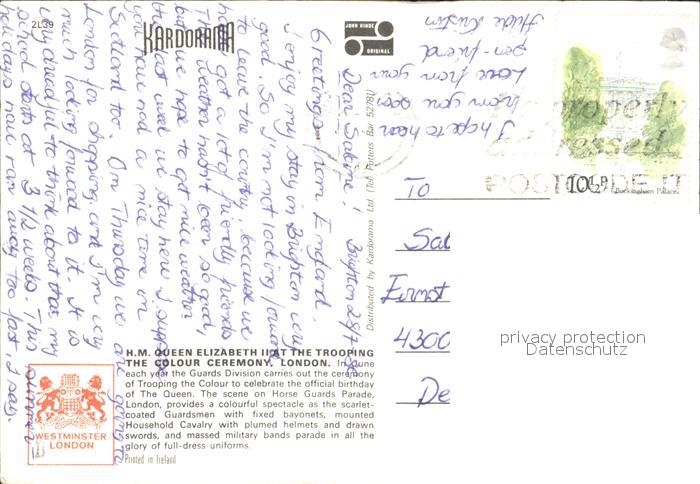 2L39
KARDORAMA
JOHN HINDE
ORIGINAL
Brighton 28/7
Dear Sabine!
Greetings from England.
I enjoy my stay in Brighton very
good. So I'm not looking forward
to leave the country, because we
have got a lot of friendly friends
The weather hasn't been so good,
but we hope to get nice weather
the last week we stay here. I suppose
you have had a nice time in
Scotland too. On Thursday we are going to
London for shopping and I'm very
much looking forward to it. It is
very dreadful to think about that my
school starts at 3 1/2 weeks. This summer
holidays have ran away too fast, I say.
I hope to hear
from you soon
Love from your
pen-friend
Distributed by Kardorama Ltd. (Tel Potters Bar 52781)
properly
addressed
POSTCODE IT
10½P
Buckingham Palace
To
Sa
Ernst
4300
De
privacy protection
Datenschutz
H.M. QUEEN ELIZABETH II AT THE TROOPING
THE COLOUR CEREMONY, LONDON. In June
each year the Guards Division carries out the ceremony
of Trooping the Colour to celebrate the official birthday
of The Queen. The scene on Horse Guards Parade,
London, provides a colourful spectacle as the scarlet-
coated Guardsmen with fixed bayonets, mounted
Household Cavalry with plumed helmets and drawn
swords, and massed military bands parade in all the
glory of full-dress uniforms.
Printed in Ireland
WESTMINSTER
LONDON